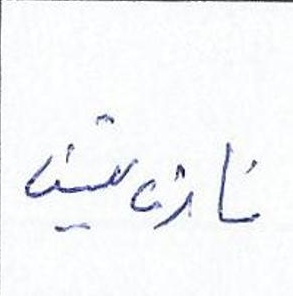 نازنین